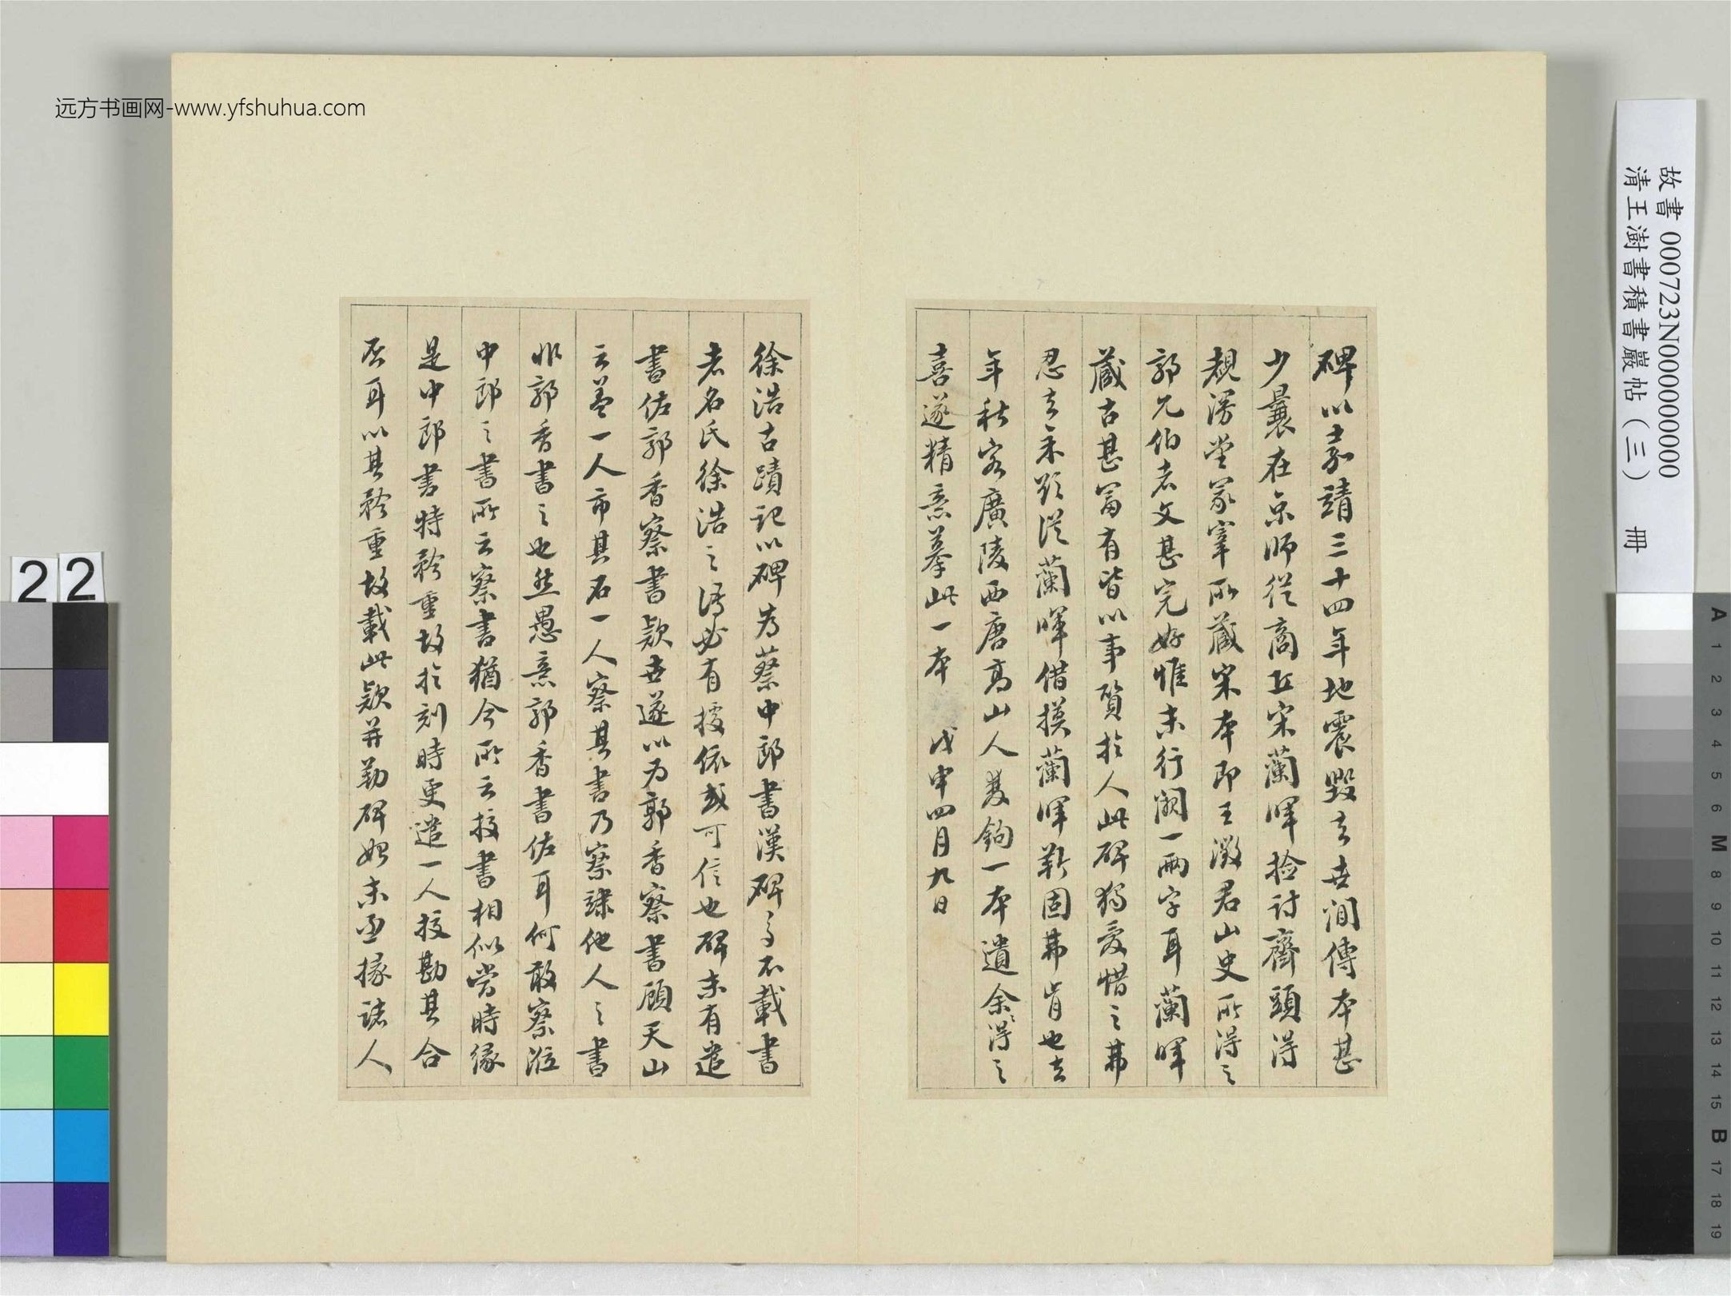 远方书画网-www.yfshuhua.com
故書 000723N000000000
清王澍書積書巖帖(三) 冊
碑以嘉靖三十四年地震毀去世間傳本甚
少曩在京師從商丘宋蘭暉檢討齋頭得
觀漫堂冢宰所藏宋本即王徵君山史所得之
郭允伯者文甚完好惟末行闕一兩字耳蘭暉
藏古甚富有皆以事質於人此碑獨愛惜之弗
忍去余欲從蘭暉借摸蘭暉靳固弗肯也去
年秋客廣陵西唐高山人雙鉤一本遺余余得之
喜遂精意摹此一本 戊申四月九日
徐浩古蹟記以碑為蔡中郎書漢碑多不載書
者名氏徐浩之語必有據依或可信也碑末有遣
書佐郭香察書款世遂以為郭香察書顧天山
云蓋一人市其石一人察其書乃察隸他人之書
非郭香書之也然愚意郭香書佐耳何敢察涖
中郎之書所云察書猶今所云挍書相似當時緣
是中郎書特矜重故於刻時更遣一人挍勘其合
否耳以其矜重故載此款并勒碑姓末丞掾諸人
22
A 1 2 3 4 5 6 M 8 9 10 11 12 13 14 15 B 17 18 19